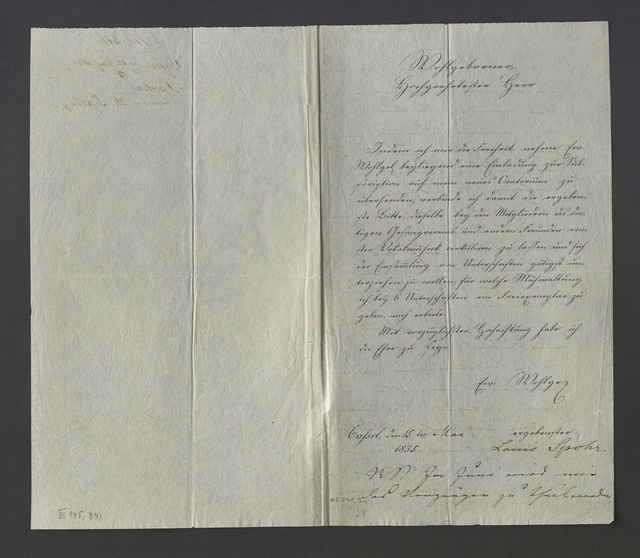 Wohlgeborner,
Hochgeehrtester Herr
Indem ich mir die Freiheit nehme Ew.
Wohlgeb. beyliegend eine Einladung zur Sub-
scription auf mein neues Oratorium zu
übersenden, verbinde ich damit die ergeben-
ste Bitte, dieselbe bey den Mitgliedern des dor-
tigen Gesangvereins und andern Freunden ern-
ster Vokalmusik cirkuliren zu lassen und sich
der Einsamlung von Unterschriften gütigst un-
terziehen zu wollen, für welche Mühwaltung
ich bey 6 Unterschriften ein Freiexemplar zu
geben mich erbiete.
Mit vorzüglichster Hochachtung habe ich
die Ehre zu seyn
Ew. Wohlgeb
Cassel, den 15ten Mai
1835.
ergebenster
Louis Spohr.
NS. Im Juni wird mir
das Vergnügen zu theil werden